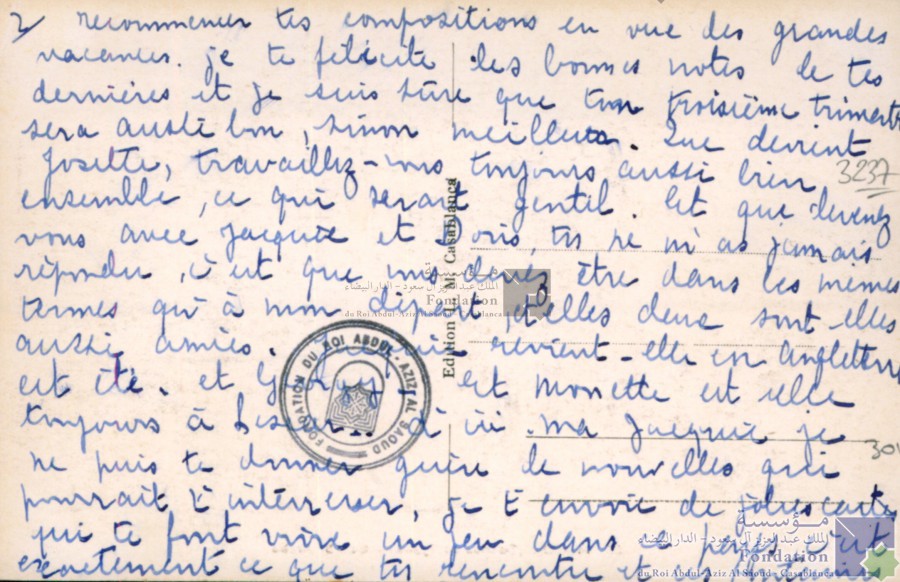 2/ recommencer tes compositions en vue des grandes
vacances. je te félicite les bonnes notes de tes
dernières et je suis sûre que ton troisième trimestre
sera aussi bon, sinon meilleur. Que devient
Josette, travaillez-vous toujours aussi bien
ensemble, ce qui serait gentil. Et que devenez
vous avec Jacquie et Doris, tu ne m'as jamais
répondu, c'est que vous devez être dans les mêmes
termes qu'à mon départ, elles deux sont-elles
aussi amies. revient-elle en Angleterre
cet été. et et Monette est elle
toujours à d'ici. Ma Jacquie je
ne puis te donner guère de nouvelles qui
pourrait t'intérresser, je t'envoie de jolies cartes
qui te font vivre un peu dans ce pays, c'est
exactement ce que tu rencontre et
3237
304
Edition J. M. Casablanca
FONDATION DU ROI ABDUL-AZIZ AL SAOUD
مؤسسة
الملك عبد العزيز آل سعود - الدار البيضاء
Fondation
du Roi Abdul-Aziz Al Saoud - Casablanca
مؤسسة
الملك عبد العزيز آل سعود - الدار البيضاء
Fondation
du Roi Abdul-Aziz Al Saoud - Casablanca